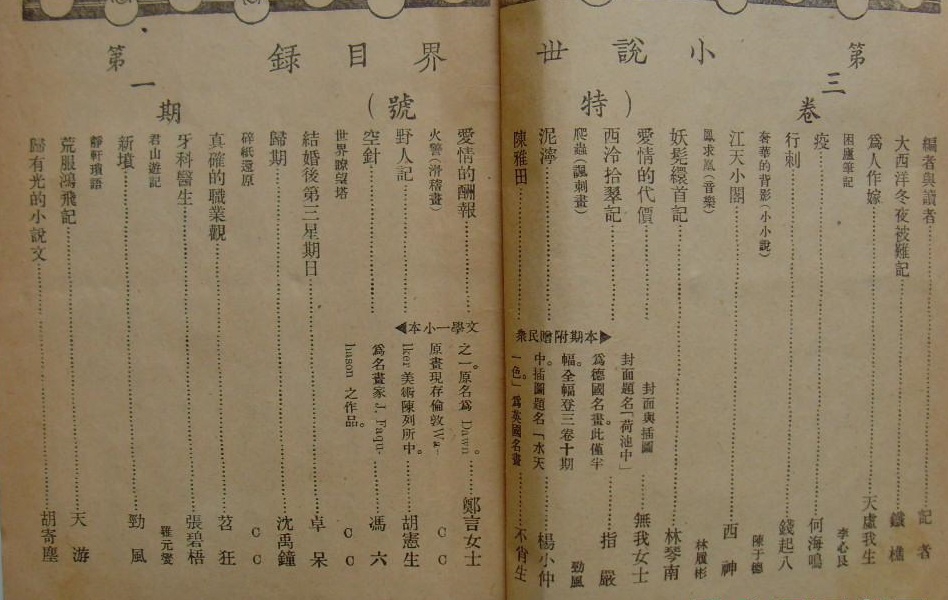 第三卷
小說世界目錄
(特號)
第一期
編者與讀者……記者
大西洋冬夜被難記……鐵樵
爲人作嫁……天虛我生
困廬筆記 李心良
疫……何海鳴
行刺……錢起八
奢華的背影(小小說) 陳于德
江天小閣……西神
鳳求凰(音樂) 林履彬
妖髡繯首記……林琴南
愛情的代價……無我女士
西泠拾翠記……指嚴
爬蟲(諷刺畫) 勁風
泥濘……楊小仲
陳雅田……不肖生
愛情的酬報……鄭言女士
火警(滑稽畫) C C
野人記……胡憲生
空針……馮六
世界瞭望塔 C C
結婚後第三星期日……卓呆
歸期……沈禹鐘
碎紙還原 C C
真確的職業觀……苕狂
牙科醫生……張碧梧
君山遊記 元燮
新墳……勁風
靜軒瑣語
荒服鴻飛記……天游
歸有光的小說文……胡寄塵
▶本期附贈民衆文學一小本◀
封面與插圖
封面題名「荷池中」
爲德國名畫。此僅半
幅。全幅登三卷十期
中。插圖題名「水天
一色」爲英國名畫
之一。原名爲 Dawn。
原畫現存倫敦Wa-
lker美術陳列所中。
爲名畫家J. Faqu-
hason 之作品。